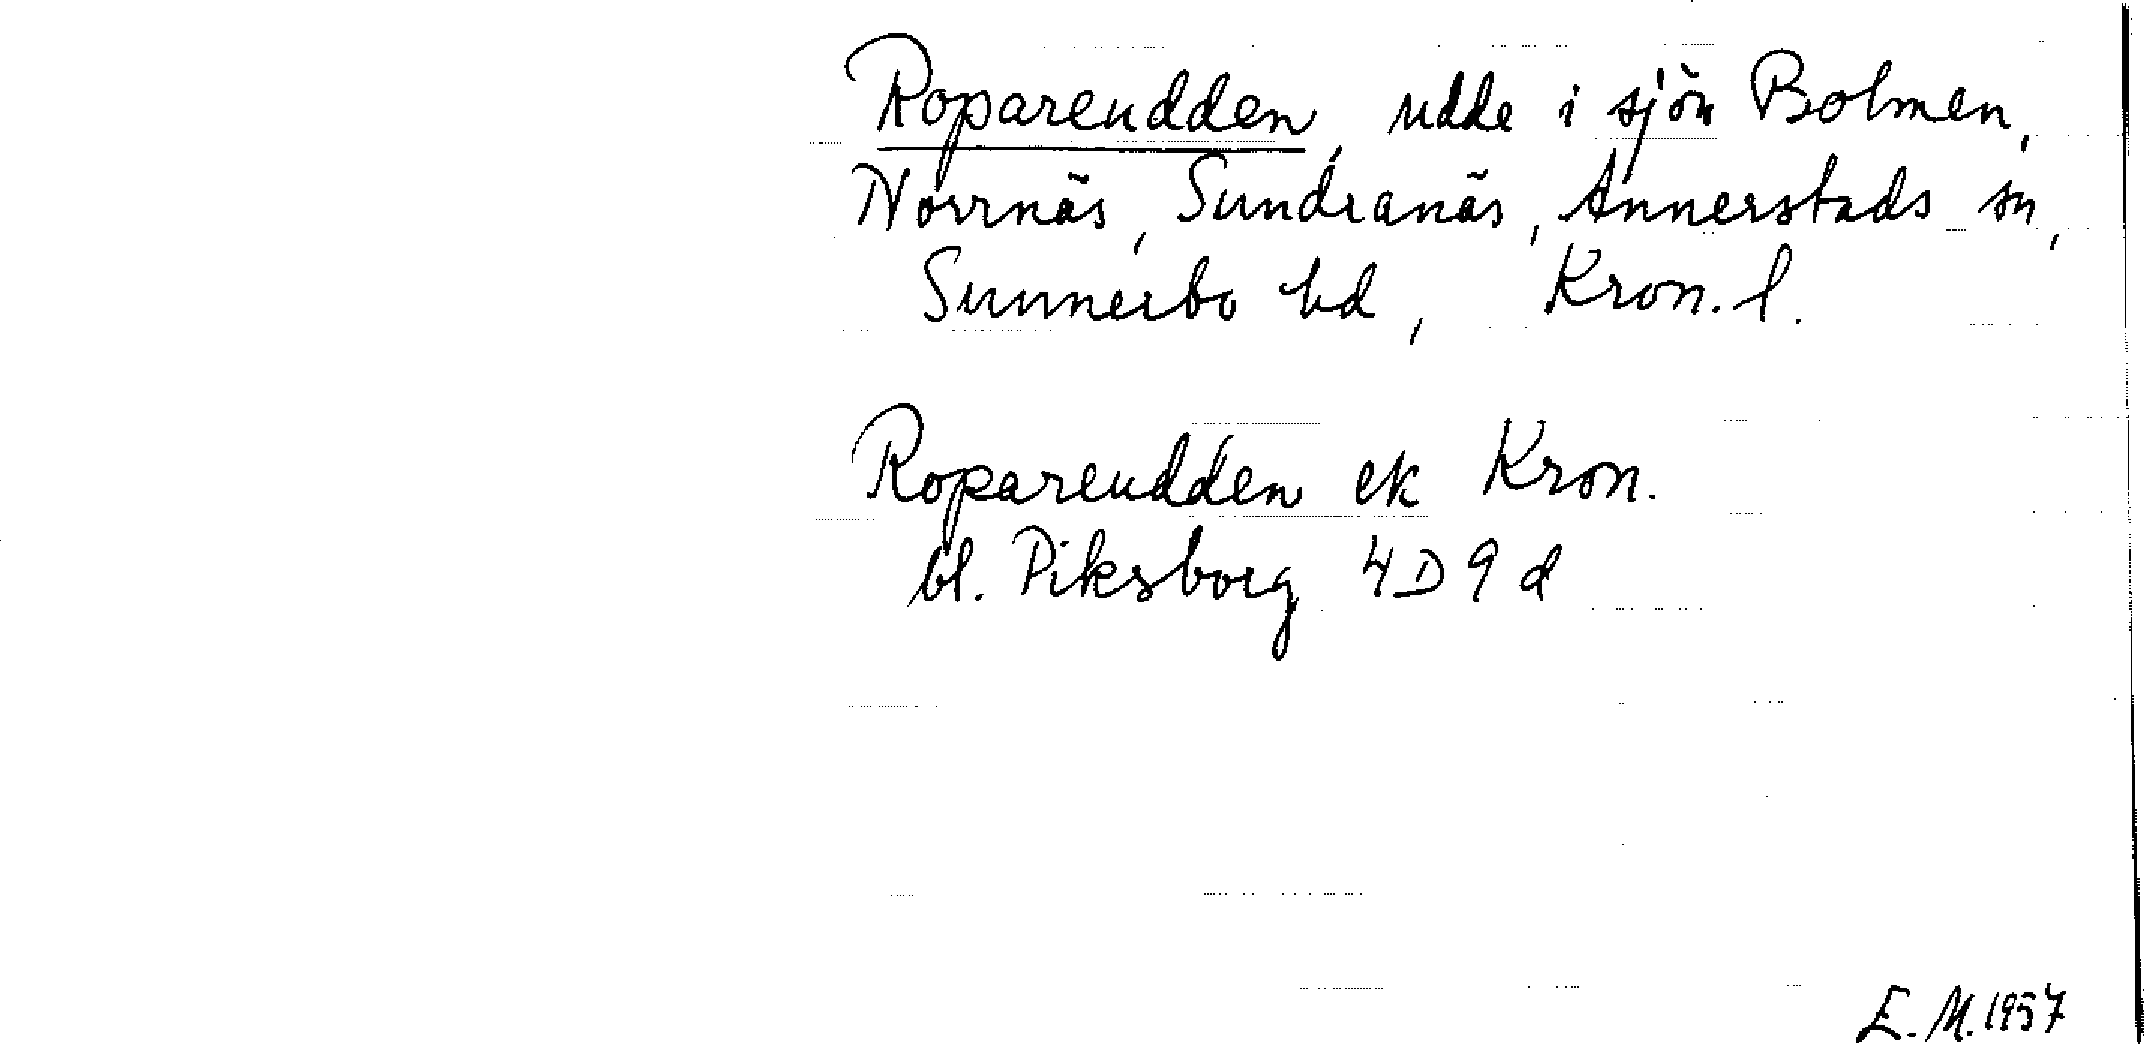 Ropareudden, udde i sjön Bolmen,
Norrnäs, Sundranäs, Annerstads sn,
Sunnerbo hd, Kron. l.
Ropareudden ek Kron.
bl. Piksborg 4D9d
E. M. 1957